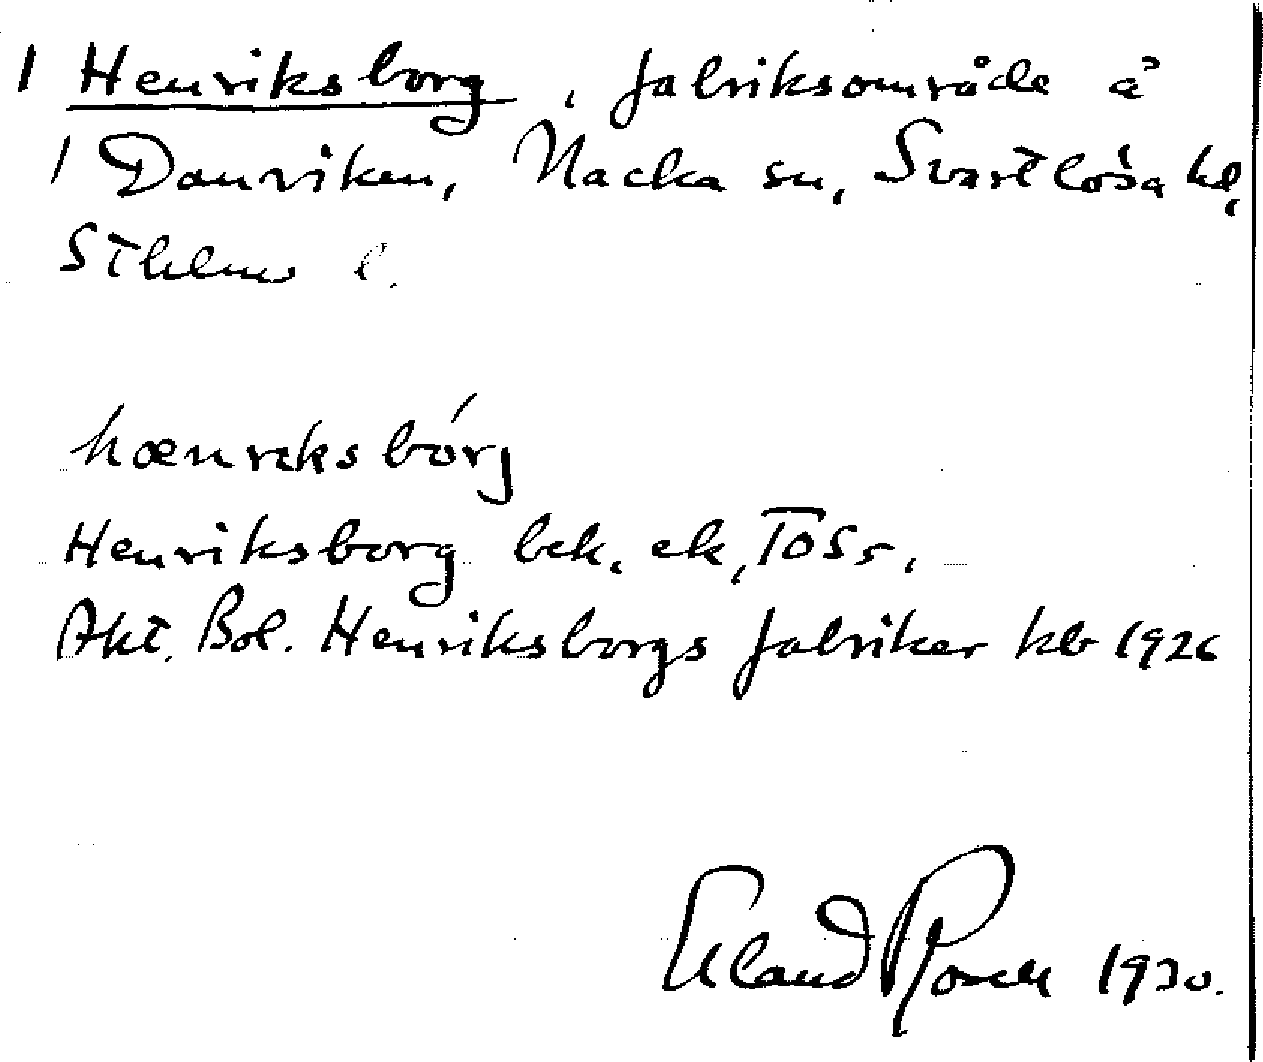 1 Henriksborg, fabriksområde å
1 Danviken, Nacka sn, Svartlösa hd,
Sthlms l.
hænreksbórj
Henriksborg bek. ek,
Akt. Bol. Henriksborgs fabriker kb 1926
Erland Rosell 1930.